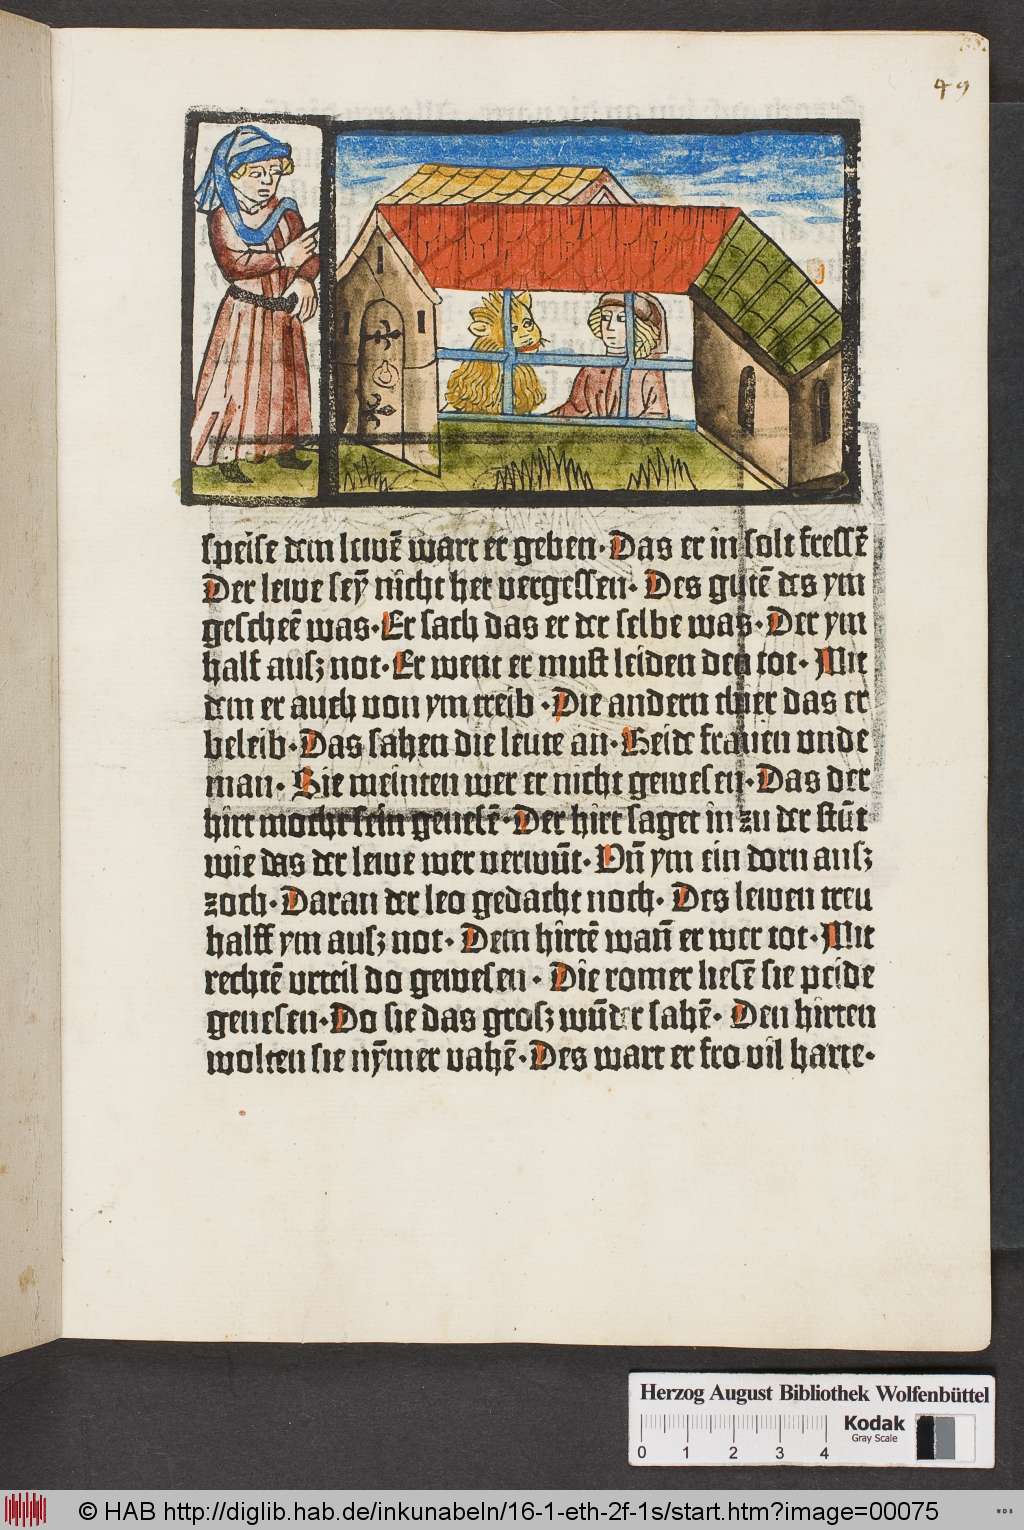 49
speise dem lewē wart er geben· Das er in solt fressē
Der lewe sey̅ nicht het vergessen· Des gutē des ym
gescheē was· Er sach das er der selbe was· Der ym
half ausz not· Er went er must leiden den tot· Mit
dem er auch von ym treib· Die andern thier das er
beleib· Das sahen die leute an· Beide frauen vnde
man· Sie meinten wer er nicht gewesen· Das der
hirt mocht sein genesē· Der hirt saget in zu der stūt
wie das der lewe wer verwūt· Vn̄ ym ein dorn ausz
zoch· Daran der leo gedacht noch· Des lewen treu
halff ym ausz not· Dem hirtē wan̄ er wer tot· Mit
rechtē vrteil do gewesen· Die romer liesē sie peide
genesen· Do sie das grosz wūder sahē· Den hirten
wolten sie ny̅mer vahē· Des wart er fro vil harte·
Herzog August Bibliothek Wolfenbüttel
0 1 2 3 4 Kodak
Gray Scale
© HAB http://diglib.hab.de/inkunabeln/16-1-eth-2f-1s/start.htm?image=00075